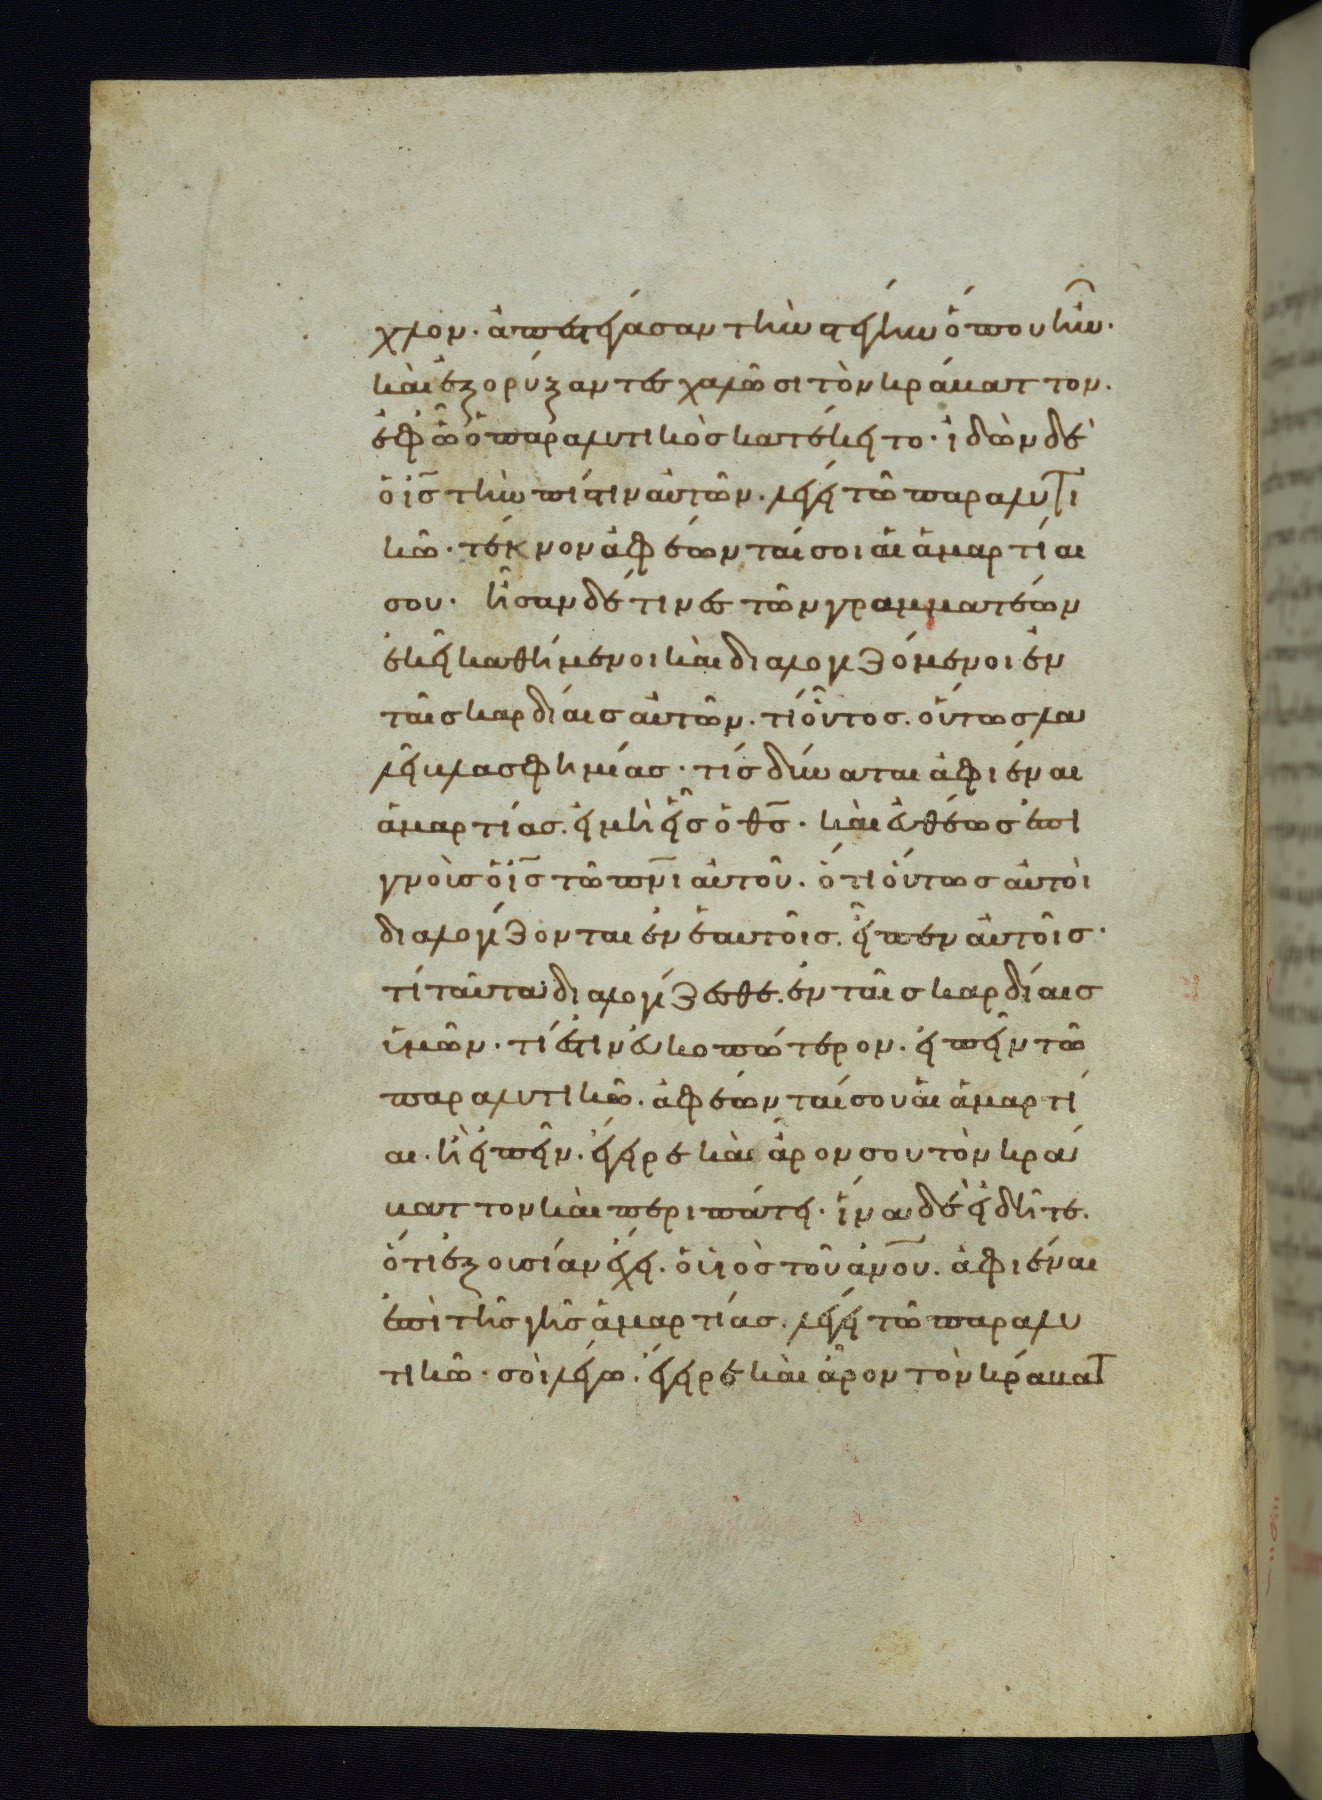 χλον. ἀπεστέγασαν τὴν στέγην ὅπου ἦν.
καὶ ἐξορύξαντες χαλῶσι τὸν κράβαττον.
ἐφ ῶ ὁ παραλυτικὸς κατέκειτο. ἰδὼν δὲ
ὁ ις̅ τὴν πίστιν αὐτῶν. λέγει τῶ παραλυτι
κῶ. τέκνον ἀφέωνταί σοι αἱ ἁμαρτίαι
σου. ἦσαν δέ τινες τῶν γραμματέων
ἐκεῖ καθήμενοι καὶ διαλογιζόμενοι ἐν
ταῖς καρδίαις αὐτῶν. τί οὗτος. οὕτως λα
λεῖ βλασφημίας. τίς δύναται ἀφιέναι
ἁμαρτίας. εἰ μὴ εἷς ὁ θς̅. καὶ εὐθέως ἐπι
γνοὺς ὁ ις̅ τῶ πν̅ι αὐτοῦ. ὅτι οὕτως αὐτοὶ
διαλογίζονται ἐν ἑαυτοῖς. εἶπεν αὐτοῖς.
τί ταῦτα διαλογίζεσθε. ἐν ταῖς καρδίαις
ὑμῶν. τί ἐστιν εὐκοπώτερον. εἰπεῖν τῶ
παραλυτικῶ. ἀφέωνταί σου αἱ ἁμαρτί
αι. ἢ εἰπεῖν. ἔγειρε καὶ ἆρον σου τὸν κρά
βαττον καὶ περιπάτει. ἵνα δὲ εἰδῆτε.
ὅτι ἐξουσίαν ἔχει. ὁ υἱὸς τοῦ ἀν̅ου. ἀφιέναι
ἐπὶ τῆς γῆς ἁμαρτίας. λέγει τῶ παραλυ
τικῶ. σοὶ λέγω. ἔγειρε καὶ ἆρον τὸν κράβατ